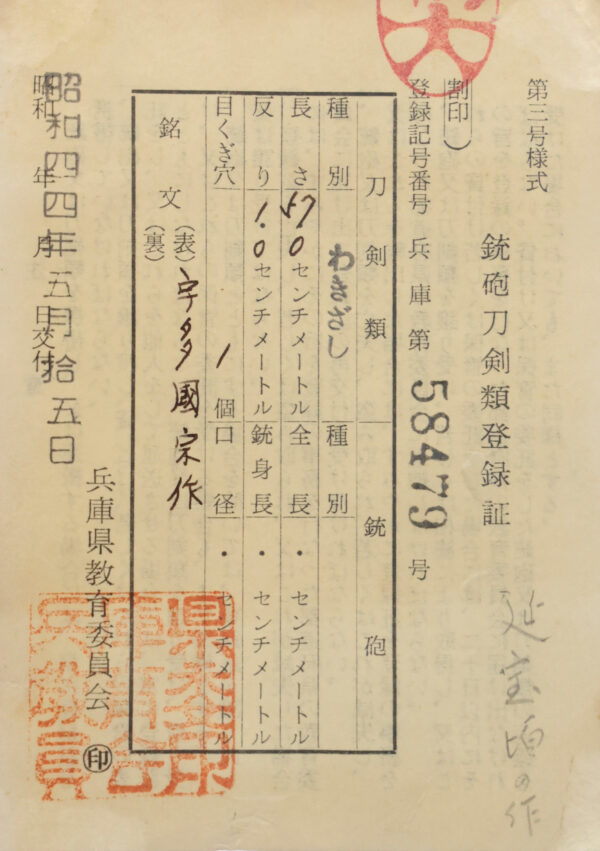 第三号様式
銃砲刀剣類登録証
延宝頃の作
(割印)
登録記号番号 兵庫第 58479 号
刀剣類 銃砲
種別 わきざし 種別
長さ 57.0 センチメートル 全長 ・ センチメートル
反り 1.0 センチメートル 銃身長 ・ センチメートル
目くぎ穴 1 個 口径 ・ センチメートル
銘文 (表) 宇多國宗作
(裏)
兵庫県教育委員会 ㊞
昭和 年 月 日交付
昭和四四年五月拾五日